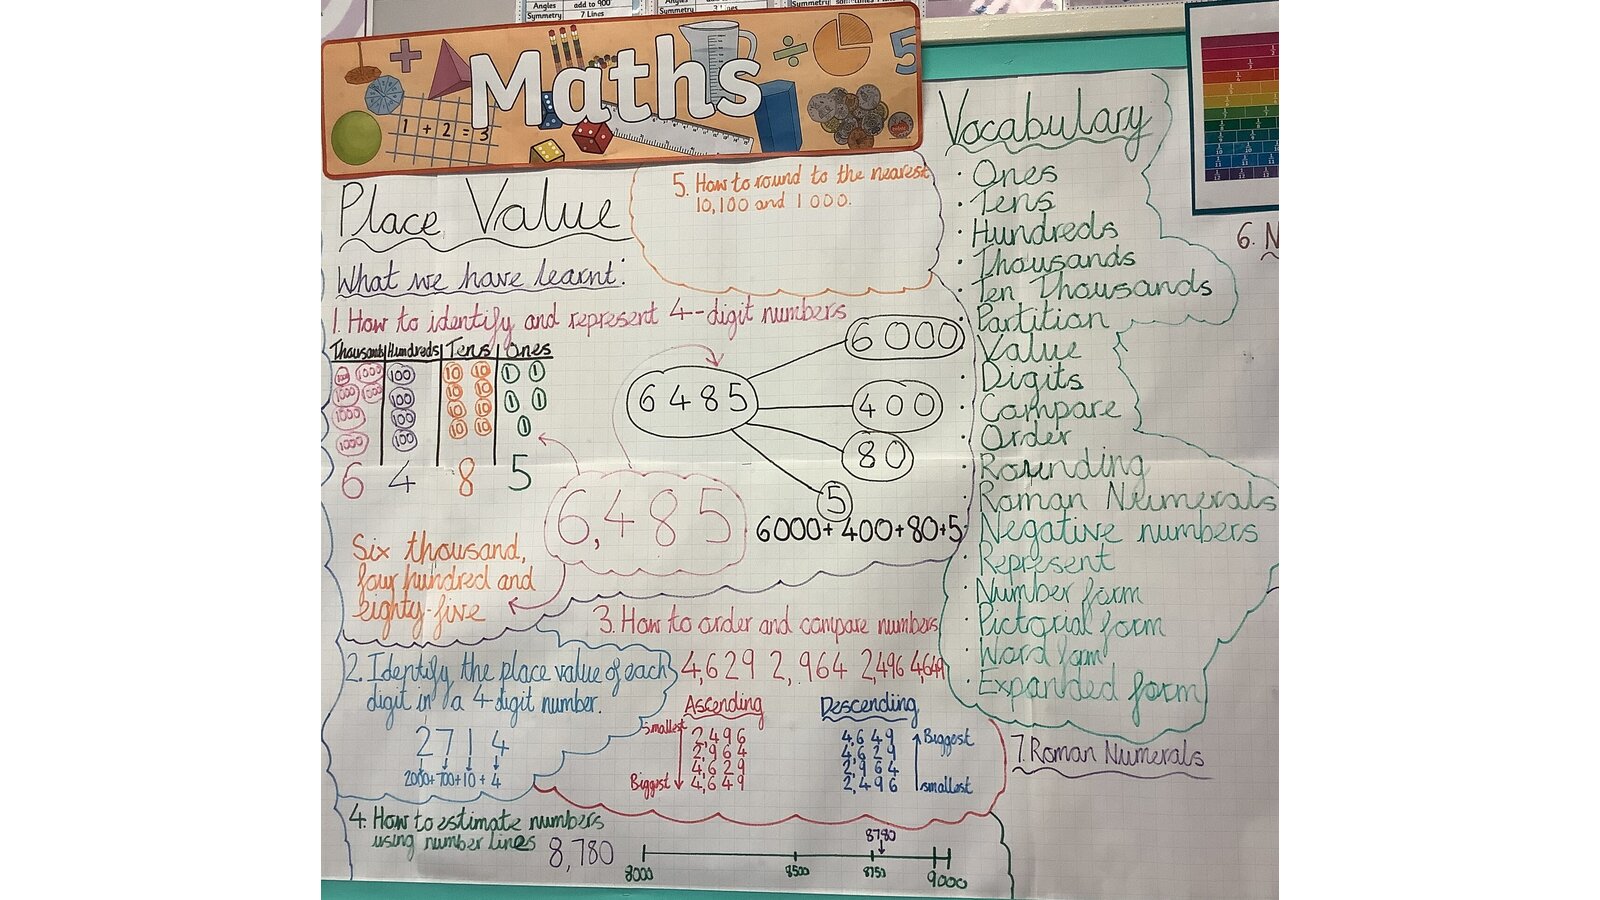 Angles add to 900
Symmetry 7 Lines
Symmetry
Maths
1 + 2 = 3
5
Place Value
What we have learnt:
1. How to identify and represent 4-digit numbers
Thousands Hundreds Tens Ones
1000 100 10 10 1 1
1000 1000 100 10 10 1 1
1000 100 10 10 1
1000 100 10 10
6 4 8 5
6,485
Six thousand,
four hundred and
eighty-five
6485
6000
400
80
5
6000+400+80+5
2. Identify the place value of each
digit in a 4-digit number.
2714
2000+700+10+4
3. How to order and compare numbers
4,629 2,964 2,496 4,649
Ascending
Smallest
2,496
2,964
4,629
Biggest 4,649
Descending
4,649 Biggest
4,629
2,964
2,496 smallest
4. How to estimate numbers
using number lines 8,780
8780
8000 8500 8750 9000
5. How to round to the nearest
10,100 and 1000.
Vocabulary
· Ones
· Tens
· Hundreds
· Thousands
· Ten Thousands
· Partition
· Value
· Digits
· Compare
· Order
· Rounding
· Roman Numerals
· Negative numbers
· Represent
· Number form
· Pictorial form
· Word form
· Expanded form
6. N
7. Roman Numerals